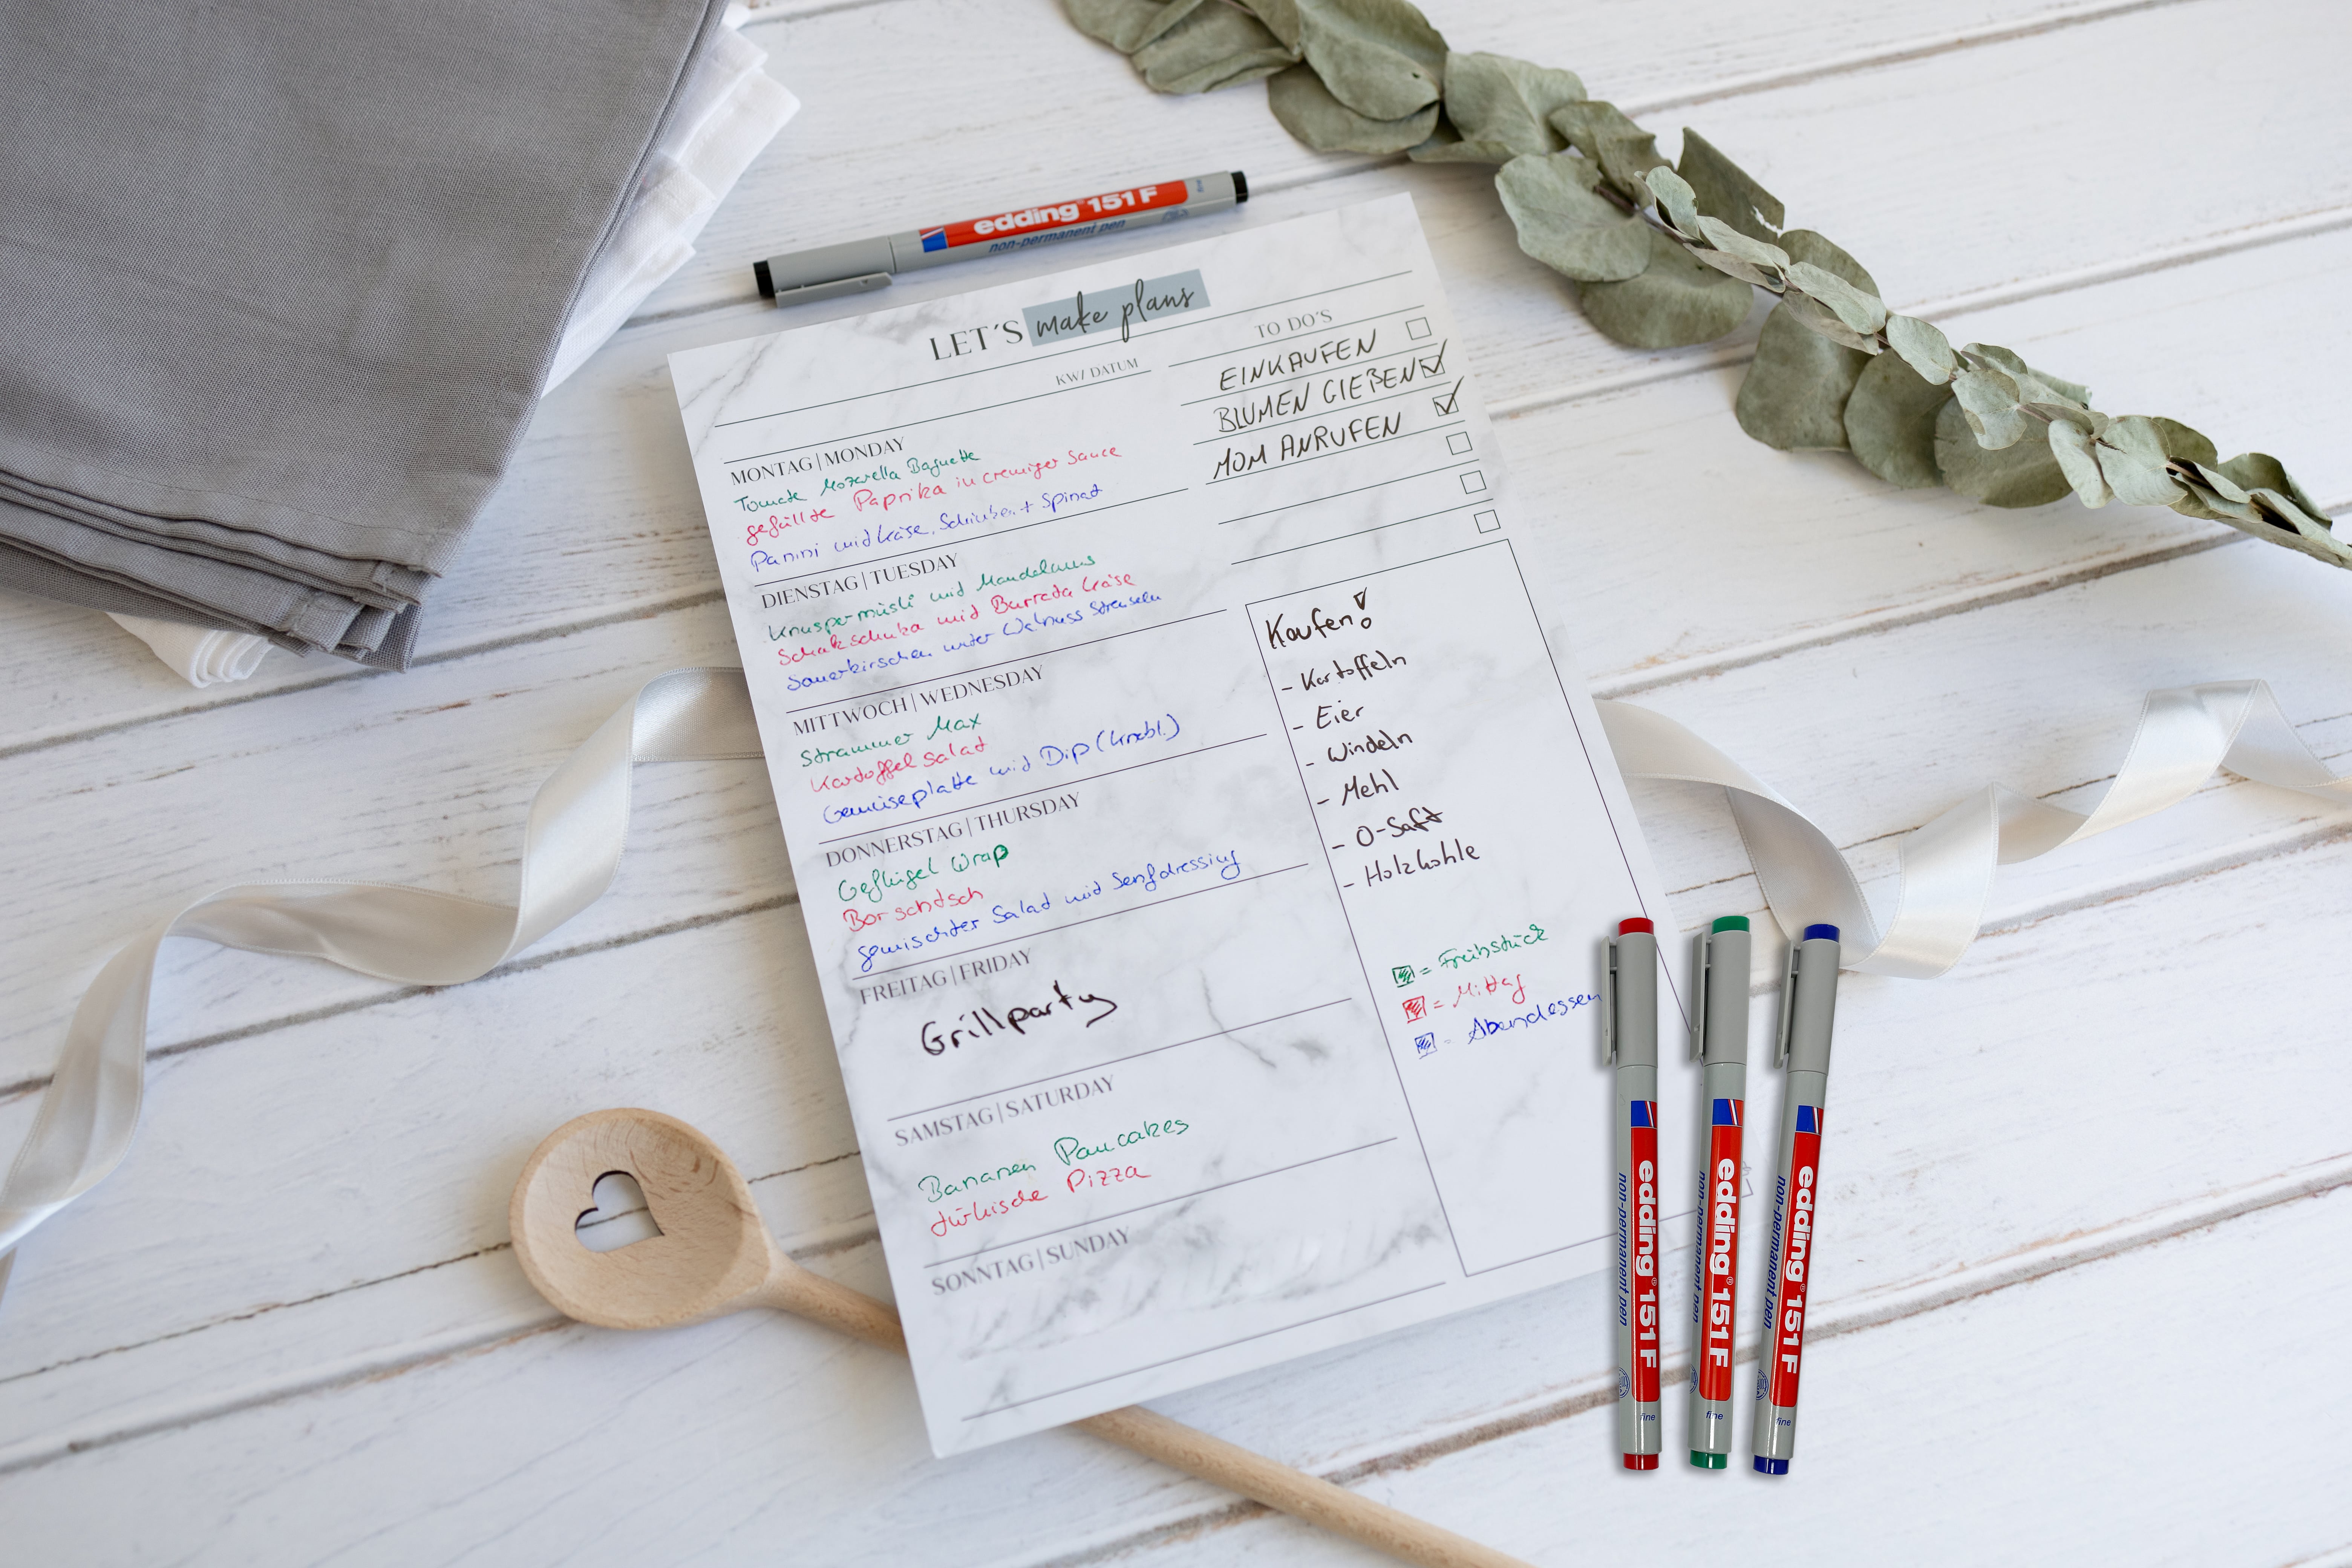 edding 151 F fine
non-permanent pen
LET'S make plans
KW/ DATUM
MONTAG | MONDAY
Tomate Mozarella Baguette
gefüllte Paprika in cremiger Sauce
Panini mit Käse, Schinken + Spinat
DIENSTAG | TUESDAY
Knuspermüsli mit Mandelmus
Schakschuka mit Burrata Käse
Sauerkirschen unter Walnuss Streuseln
MITTWOCH | WEDNESDAY
Strammer Max
Kartoffel Salat
Gemüseplatte mit Dip (Knobl.)
DONNERSTAG | THURSDAY
Geflügel Wrap
Borschtsch
gemischter Salat mit Senfdressing
FREITAG | FRIDAY
Grillparty
SAMSTAG | SATURDAY
Bananen Pancakes
türkische Pizza
SONNTAG | SUNDAY
TO DO'S
EINKAUFEN
BLUMEN GIEßEN
MOM ANRUFEN
Kaufen!
- Kartoffeln
- Eier
- Windeln
- Mehl
- O-Saft
- Holzkohle
= Frühstück
= Mittag
= Abendessen
edding 151 F fine
non-permanent pen
edding 151 F fine
non-permanent pen
edding 151 F fine
non-permanent pen